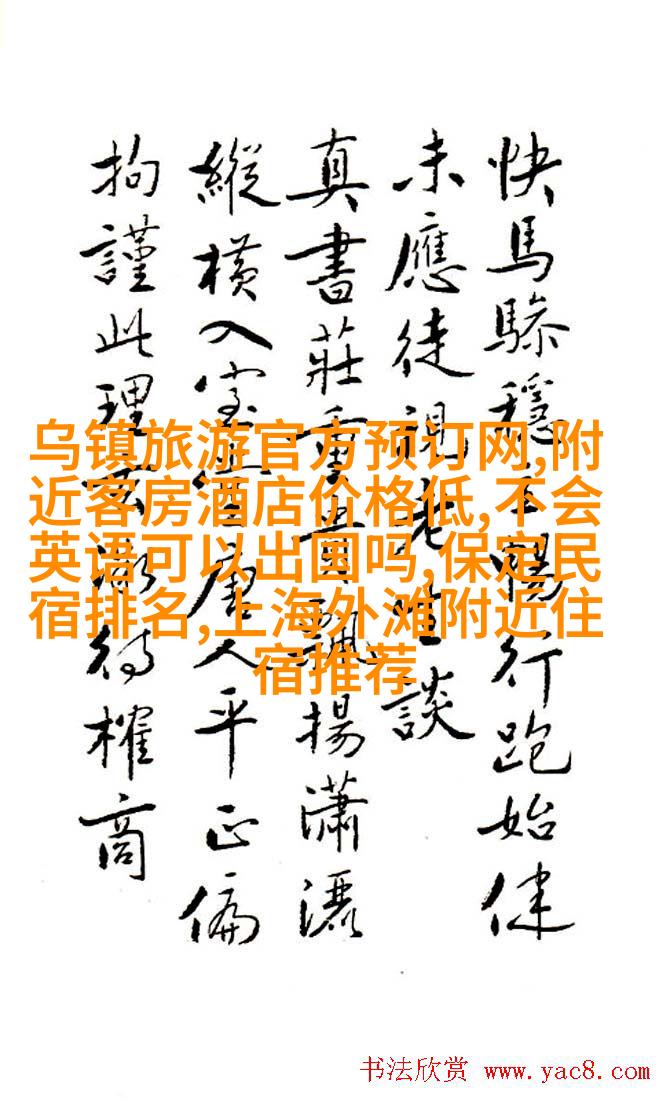 快馬驂穩暢行跑始健
未應徒視老談
真書莊重揚瀟灑
縱橫入室唐人平正偏
拘謹此理玄微待榷商
乌镇旅游官方预订网,附
近客房酒店价格低,不会
英语可以出国吗,保定民
宿排名,上海外滩附近住
宿推荐
书法欣赏 www.yac8.com